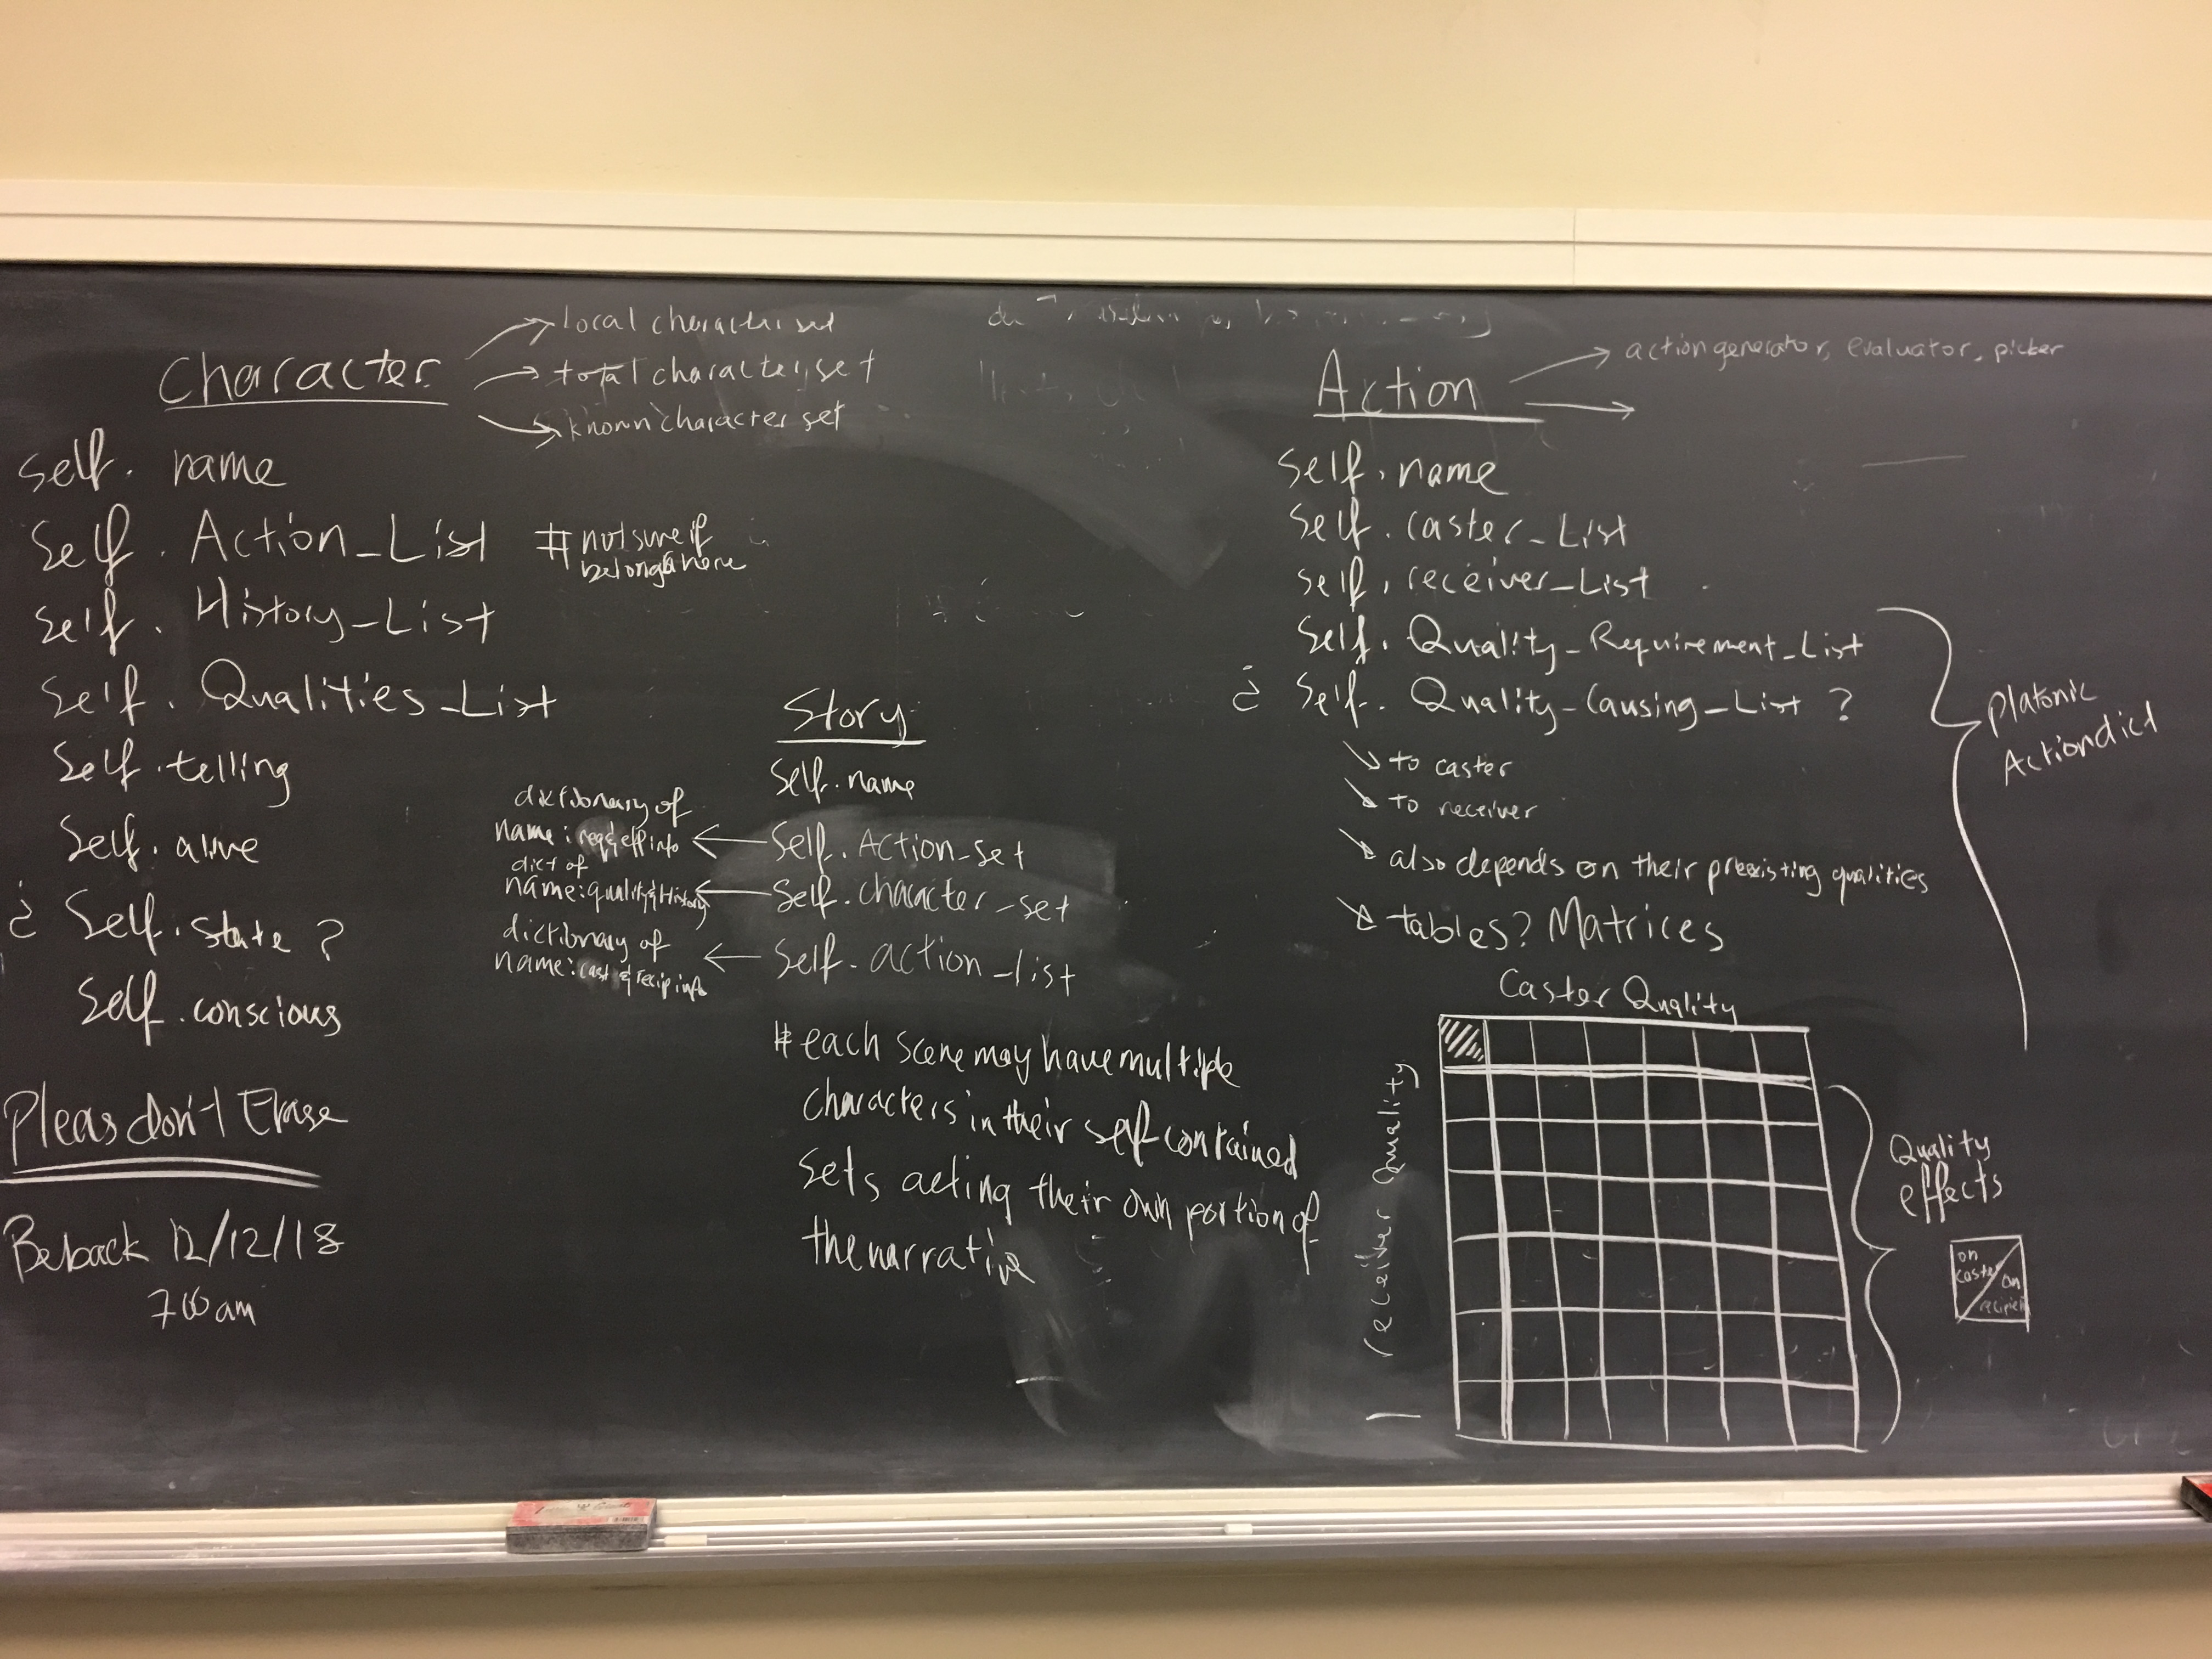 Character
→ local character set
→ total character set
→ known character set
self. name
Self. Action_List # not sure if
belongs here
Self. History_List
Self. Qualities_List
Self. telling
Self. alive
¿ Self. state ?
Self. conscious
Pleas don't Erase
Be back 12/12/18
700 am
Story
Self. name
dictionary of
name: req & eff info ← Self. Action_set
dict of
name: quality & History ← Self. character_set
dictionary of
name: cast & recip info ← Self. action_list
# each scene may have multiple
characters in their self contained
sets acting their own portion of
the narrative
Action
→ action generator, evaluator, picker
→
Self. name
Self. caster_List
Self. receiver_List
Self. Quality_Requirement_List
¿ Self. Quality_Causing_List ?
↘ to caster
↘ to receiver
↘ also depends on their preexisting qualities
↘ tables? Matrices
Platonic
Action dict
Caster Quality
receiver Quality
Quality
effects
on
caster
on
recipient